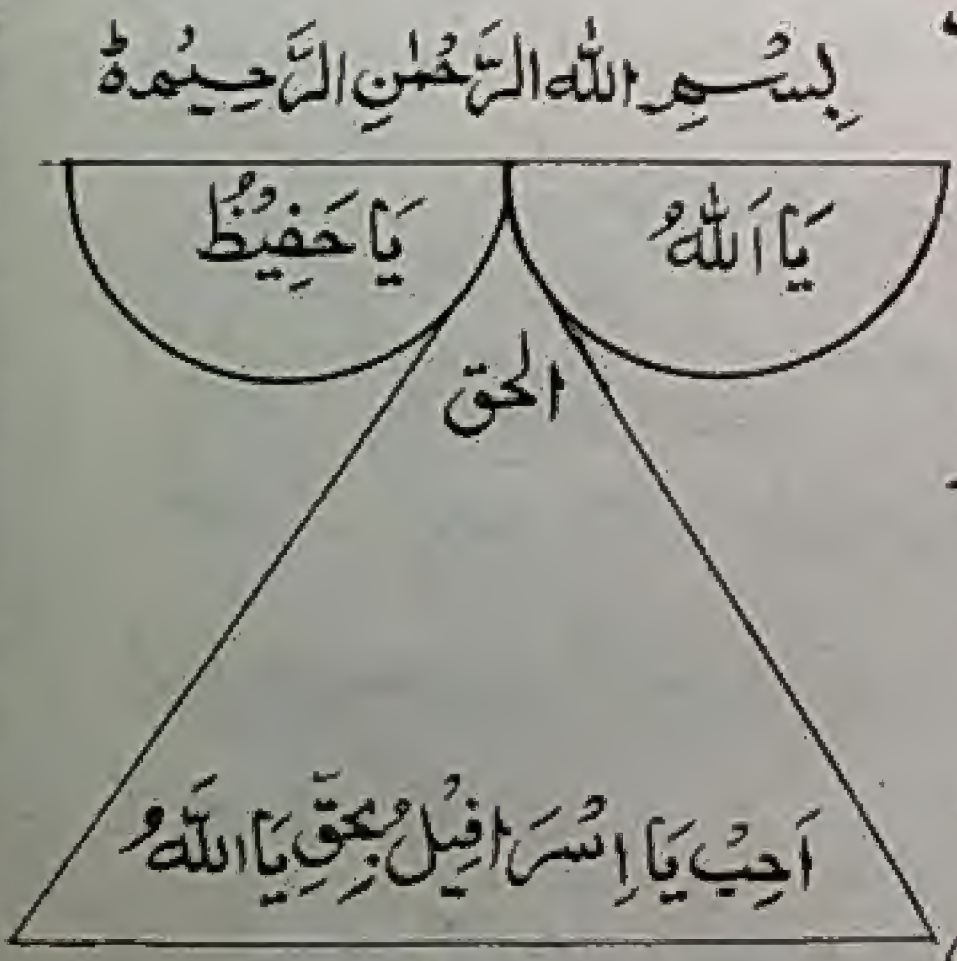 بِسْمِ اللهِ الرَّحْمٰنِ الرَّحِيْمِ ۃ
يَا اَللهُ
يَا حَفِيْظُ
الحق
اَجِبْ يَا اِسْرَافِيْلُ بِحَقِّ يَا اَللّٰهُ